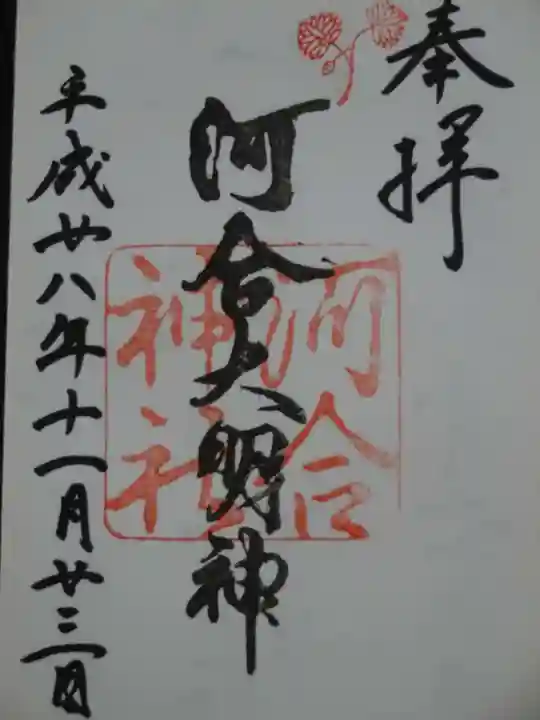 奉拝
河合大明神
河合
神社
平成廿八年十一月廿三日